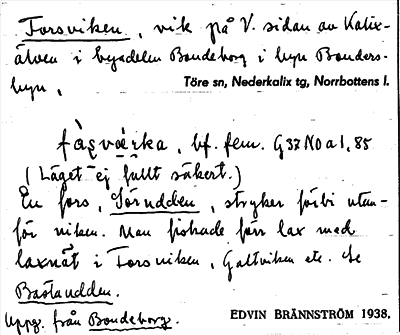 Forsviken, vik på V. sidan av Kalix-
älven i byadelen Bondeborg i byn Bonders-
byn.
Töre sn, Nederkalix tg, Norrbottens l.
bf. fem. G 37 NO a 1, 85
(Läget ej fullt säkert.)
En fors, Sörudden, stryker förbi utan-
för viken. Man fiskade förr lax med
laxnät i Forsviken, Galtviken etc. Se
Bastaudden.
Uppg. från Bondeborg.
EDVIN BRÄNNSTRÖM 1938.